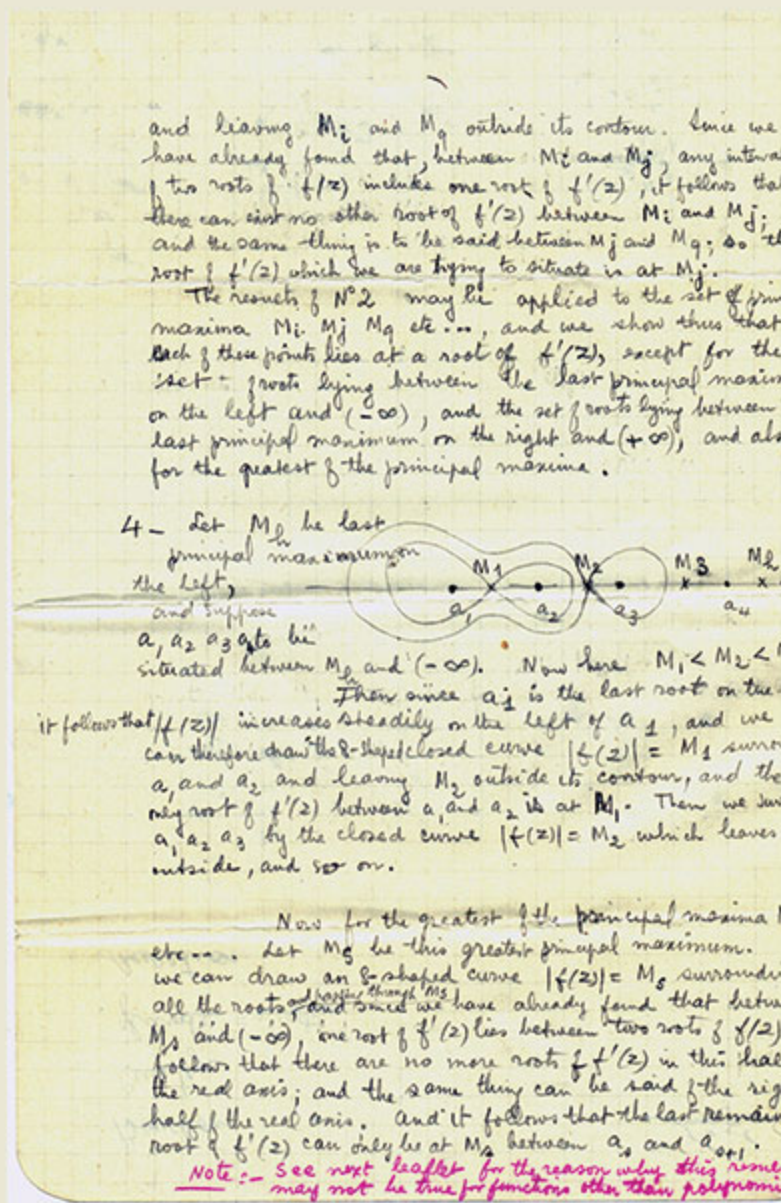 and leaving Mi and Mq outside its contour. Since we
have already found that, between Mi and Mj, any interva
of two roots of f(z) includes one root of f'(z), it follows that
there can exist no other root of f'(z) between Mi and Mj;
and the same thing is to be said between Mj and Mq; so th
root of f'(z) which we are trying to situate is at Mj.
The results of N°2 may be applied to the set of prin
maxima Mi Mj Mq etc..., and we show thus that
each of these points lies at a root of f'(z), except for the
set of roots lying between the last principal maxim
on the left and (-∞), and the set of roots lying between
last principal maximum on the right and (+∞), and als
for the greatest of the principal maxima.
4 - Let Mh be last
principal maximum on
the left,
and suppose
a, a2 a3 a4 to be
M1 M2 M3 Mh
a1 a2 a3 a4
situated between Mh and (-∞). Now here M1 < M2 < M
Then since a1 is the last root on the
it follows that |f(z)| increases steadily on the left of a1, and we
can therefore draw the 8-shaped closed curve |f(z)| = M1 surro
a, and a2 and leaving M2 outside its contour, and the
only root of f'(z) between a, and a2 is at M1. Then we sur
a, a2 a3 by the closed curve |f(z)| = M2 which leaves
outside, and so on.
Now for the greatest of the principal maxima M
etc.... Let Ms be this greatest principal maximum.
we can draw an 8-shaped curve |f(z)| = Ms surroundi
all the roots, and passing through Ms and since we have already found that betwe
Ms and (-∞), one root of f'(z) lies between two roots of f(z)
follows that there are no more roots of f'(z) in this hal
the real axis; and the same thing can be said of the rig
half of the real axis. And it follows that the last remain
root of f'(z) can only be at Ms between as and as+1.
Note:- See next leaflet for the reason why this resul
may not be true for functions other than polynomi